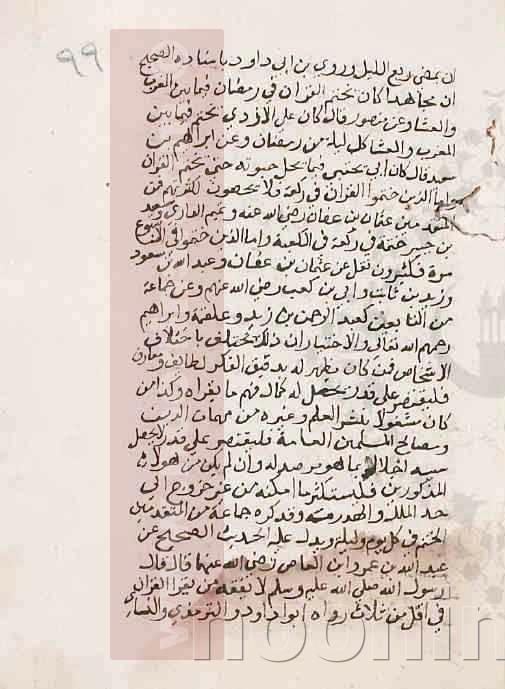 ٩٩
ان يمضي ربع الليل وروي بن ابي داود باسناده الصحيح
ان مجاهدا كان يختم القران في رمضان فيما بين المغرب
والعشا وعن منصور قال كان علي الازدي يختم فيما بين
المغرب والعشا كل ليلة من رمضان وعن ابراهيم بن
سعد قال كان ابي يحتبي فما يحل حبوته حتى يختم القران
واما الذين ختموا القران في ركعة فلا يحصون لكثرتهم فمن
المتقدمين عثمان بن عفان رضي الله عنه وتميم الداري وسعيد
بن جبير ختمة في ركعة في الكعبة واما الذين ختموا في الاسبوع
مرة فكثيرون نقل عن عثمان بن عفان وعبد الله بن مسعود
وزيد بن ثابت وابي بن كعب رضي الله عنهم وعن جماعة
من التابعين كعبد الرحمن بن زيد وعلقمة وابراهيم
رحمهم الله تعالى والاختيار ان ذلك يختلف باختلاف
الاشخاص فمن كان يظهر له بدقيق الفكر لطايف ومعارف
فليقتصر على قدر يحصل له كمال فهم ما يقراه وكذا من
كان مشغولا بنشر العلم وغيره من مهمات الدين
ومصالح المسلمين العامة فليقتصر على قدر لا يحصل
بسببه اخلال بما هو مرصد له وان لم يكن من هولاء
المذكورين فليستكثر ما امكنه من غير خروج الى
حد الملل والهذرمة وقد كره جماعة من المتقدمين
الختم في كل يوم وليلة ويدل عليه الحديث الصحيح عن
عبد الله بن عمرو ابن العاص رضي الله عنهما قال قال
رسول الله صلى الله عليه وسلم لا يفقه من يقرا القران
في اقل من ثلاث رواه ابوا داود والترمذي والنساي
noorlib